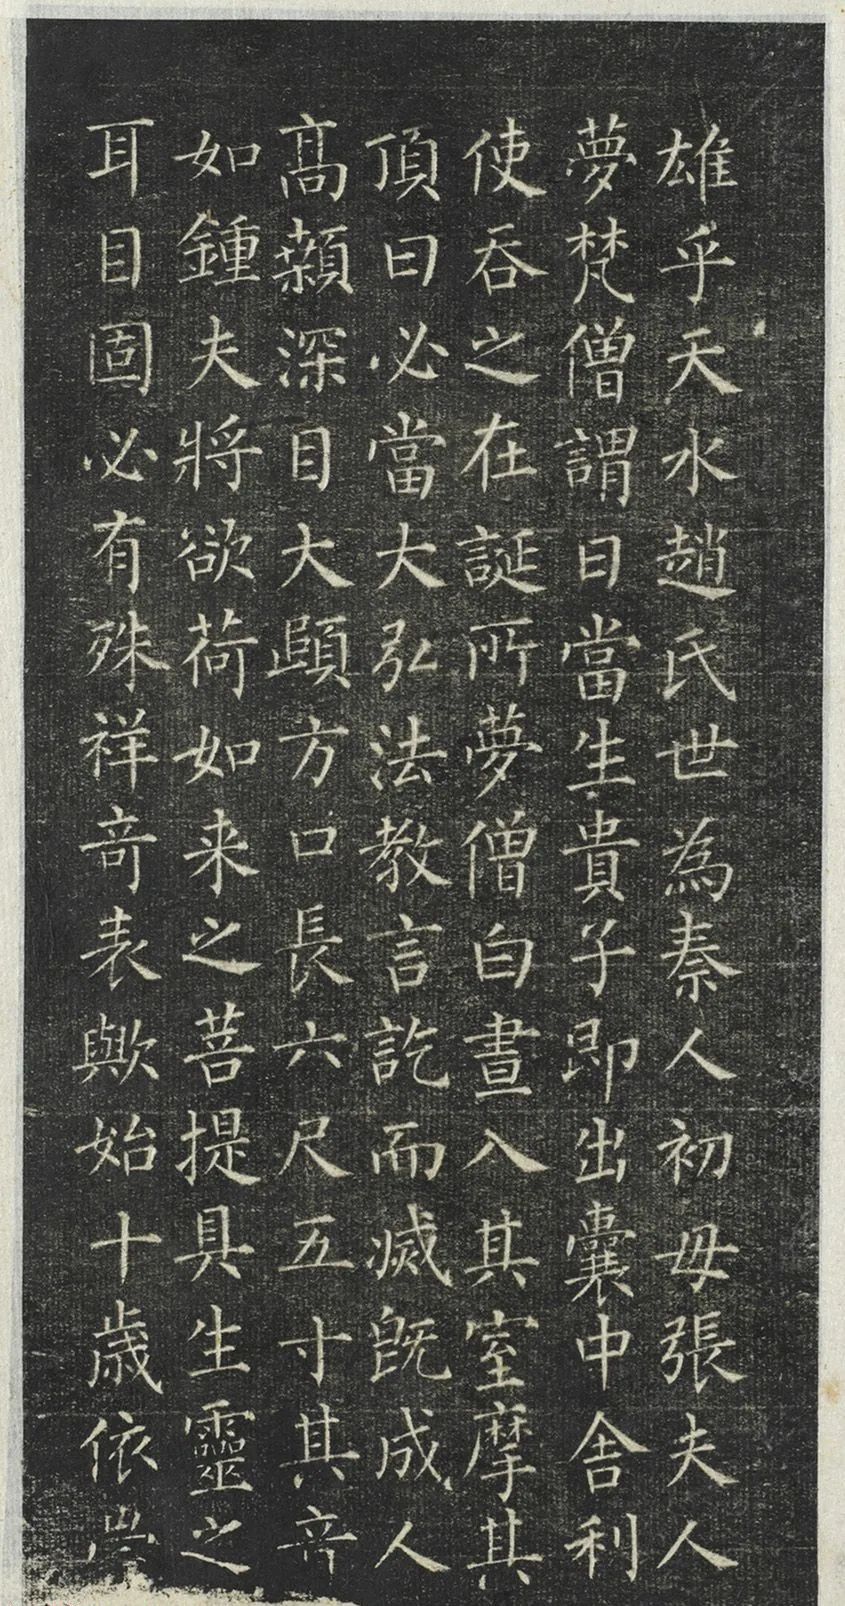 雄乎天水趙氏世為秦人初母張夫人
夢梵僧謂曰當生貴子即出囊中舍利
使吞之在誕所夢僧白晝入其室摩其
頂曰必當大弘法教言訖而滅既成人
高顙深目大頤方口長六尺五寸其音
如鍾夫將欲荷如来之菩提具生靈之
耳目固必有殊祥奇表歟始十歲依